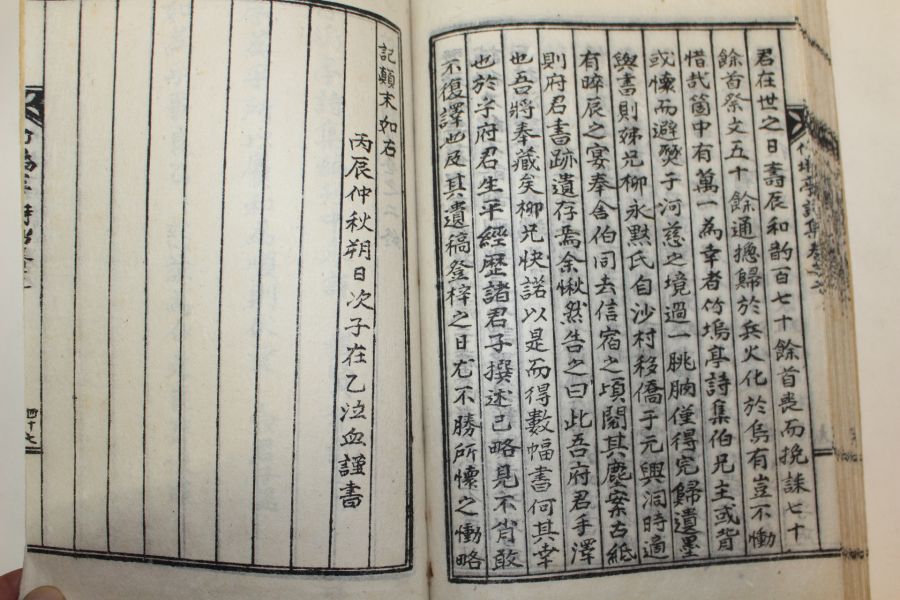 君在世之日壽辰和韵百七十餘首喪而挽誄七十
餘首祭文五十餘通摠歸於兵火化於烏有豈不慟
惜哉箇中有萬一為幸者竹塢亭詩集伯兄主或背
或懷而避燹于河慈之境過一朓朒僅得完歸遺墨
與書則姊兄柳永黙氏自沙村移僑于元興洞時適
有晬辰之宴奉舍伯同去信宿之頃閱其塵案古紙
則府君書跡遺存焉余愀然告之曰此吾府君手澤
也吾將奉藏矣柳兄快諾以是而得數幅書何其幸
也於乎府君生平經歷諸君子撰述已略見不肖敢
不復譯也及其遺稿登梓之日尤不勝所懷之慟略
記顚末如右
丙辰仲秋朔日次子在乙泣血謹書
四十七